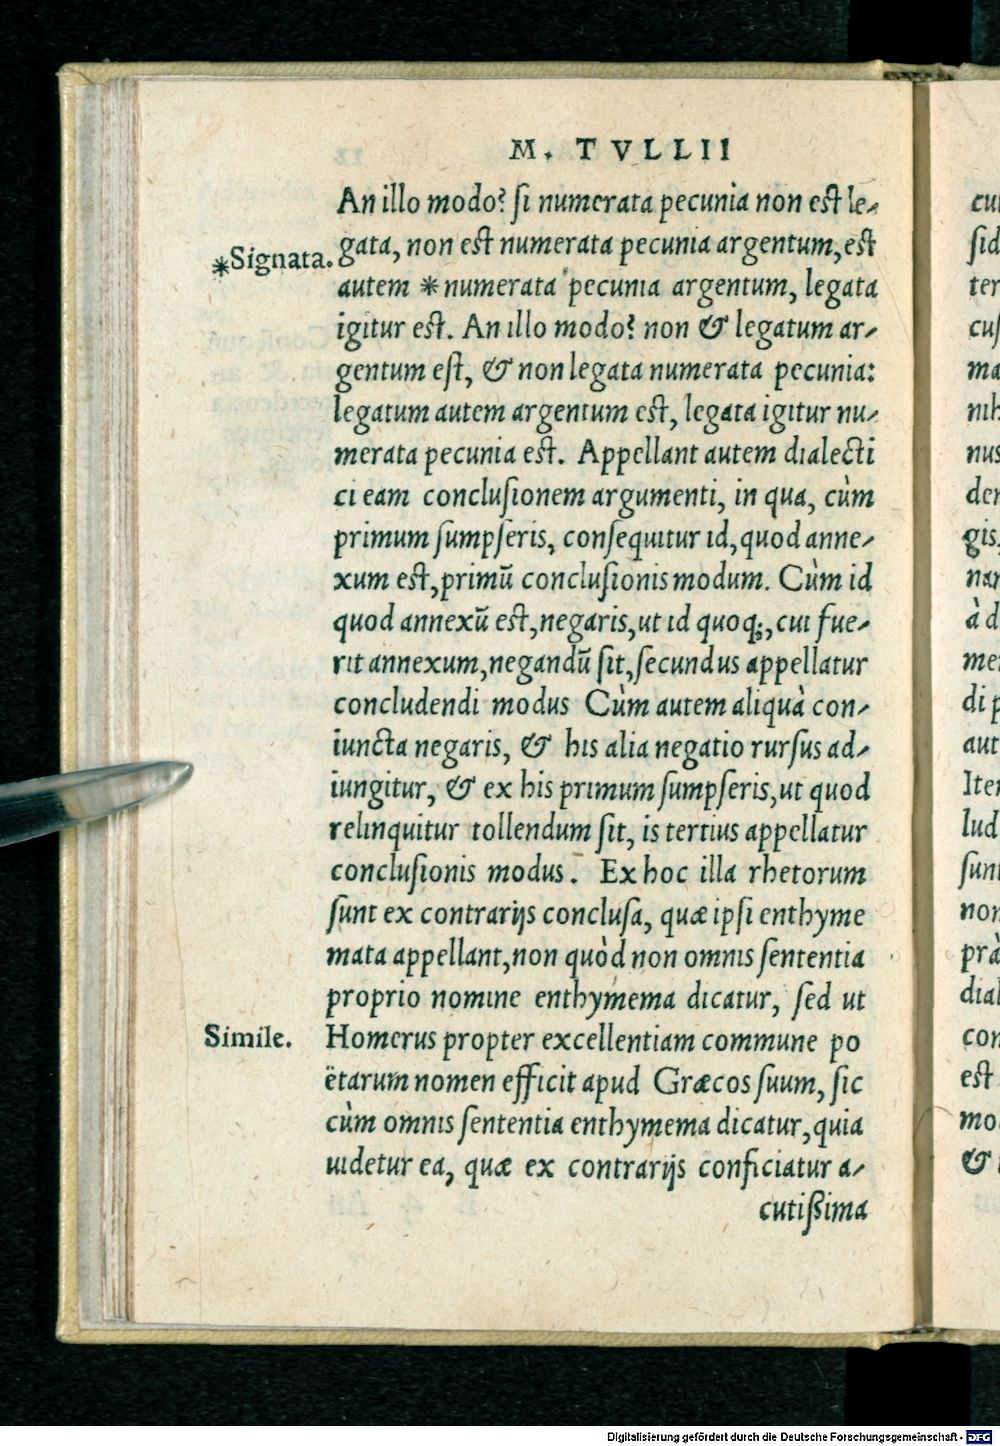 M. TVLLII
An illo modo? si numerata pecunia non est le-
gata, non est numerata pecunia argentum, est
*Signata.
autem *numerata pecunia argentum, legata
igitur est. An illo modo? non & legatum ar-
gentum est, & non legata numerata pecunia:
legatum autem argentum est, legata igitur nu-
merata pecunia est. Appellant autem dialecti
ci eam conclusionem argumenti, in qua, cùm
primum sumpseris, consequitur id, quod anne-
xum est, primū conclusionis modum. Cùm id
quod annexū est, negaris, ut id quoq;, cui fue-
rit annexum, negandū sit, secundus appellatur
concludendi modus Cùm autem aliquà con-
iuncta negaris, & his alia negatio rursus ad-
iungitur, & ex his primum sumpseris, ut quod
relinquitur tollendum sit, is tertius appellatur
conclusionis modus. Ex hoc illa rhetorum
sunt ex contrarijs conclusa, quæ ipsi enthyme
mata appellant, non quòd non omnis sententia
proprio nomine enthymema dicatur, sed ut
Simile.
Homerus propter excellentiam commune po
ëtarum nomen efficit apud Græcos suum, sic
cùm omnis sententia enthymema dicatur, quia
uidetur ea, quæ ex contrarijs conficiatur a-
cutißima
cui
sid
ter
cus
ma
nih
nus
den
gis,
nan
à d
men
di p
aut
Iten
lud
sunt
non
prà
dial
con
est
mo
&
Digitalisierung gefördert durch die Deutsche Forschungsgemeinschaft - DFG